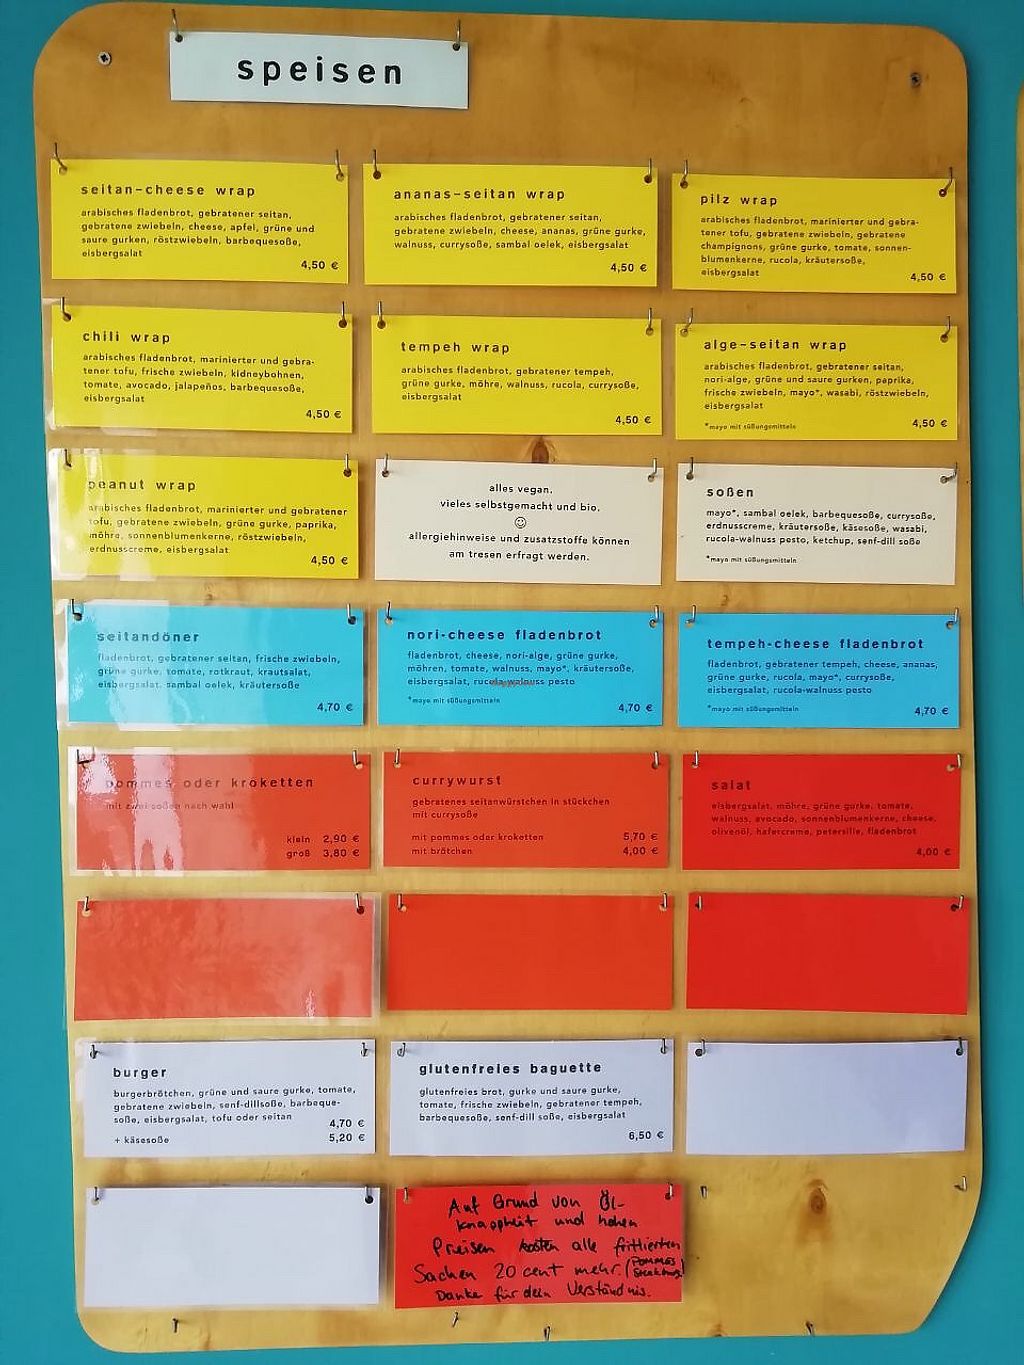 speisen
seitan-cheese wrap
arabisches fladenbrot, gebratener seitan,
gebratene zwiebeln, cheese, apfel, grüne und
saure gurken, röstzwiebeln, barbequesoße,
eisbergsalat
4,50 €
ananas-seitan wrap
arabisches fladenbrot, gebratener seitan,
gebratene zwiebeln, cheese, ananas, grüne gurke,
walnuss, currysoße, sambal oelek, eisbergsalat
4,50 €
pilz wrap
arabisches fladenbrot, marinierter und gebra-
tener tofu, gebratene zwiebeln, gebratene
champignons, grüne gurke, tomate, sonnen-
blumenkerne, rucola, kräutersoße,
eisbergsalat
4,50 €
chili wrap
arabisches fladenbrot, marinierter und gebra-
tener tofu, frische zwiebeln, kidneybohnen,
tomate, avocado, jalapeños, barbequesoße,
eisbergsalat
4,50 €
tempeh wrap
arabisches fladenbrot, gebratener tempeh,
grüne gurke, möhre, walnuss, rucola, currysoße,
eisbergsalat
4,50 €
alge-seitan wrap
arabisches fladenbrot, gebratener seitan,
nori-alge, grüne und saure gurken, paprika,
frische zwiebeln, mayo*, wasabi, röstzwiebeln,
eisbergsalat
*mayo mit süßungsmitteln
4,50 €
peanut wrap
arabisches fladenbrot, marinierter und gebratener
tofu, gebratene zwiebeln, grüne gurke, paprika,
möhre, sonnenblumenkerne, röstzwiebeln,
erdnusscreme, eisbergsalat
4,50 €
alles vegan.
vieles selbstgemacht und bio.
☺
allergiehinweise und zusatzstoffe können
am tresen erfragt werden.
soßen
mayo*, sambal oelek, barbequesoße, currysoße,
erdnusscreme, kräutersoße, käsesoße, wasabi,
rucola-walnuss pesto, ketchup, senf-dill soße
*mayo mit süßungsmitteln
seitandöner
fladenbrot, gebratener seitan, frische zwiebeln,
grüne gurke, tomate, rotkraut, krautsalat,
eisbergsalat, sambal oelek, kräutersoße
4,70 €
nori-cheese fladenbrot
fladenbrot, cheese, nori-alge, grüne gurke,
möhren, tomate, walnuss, mayo*, kräutersoße,
eisbergsalat, rucola-walnuss pesto
*mayo mit süßungsmitteln
4,70 €
tempeh-cheese fladenbrot
fladenbrot, gebratener tempeh, cheese, ananas,
grüne gurke, rucola, mayo*, currysoße,
eisbergsalat, rucola-walnuss pesto
*mayo mit süßungsmitteln
4,70 €
pommes oder kroketten
mit zwei soßen nach wahl
klein 2,90 €
groß 3,80 €
currywurst
gebratenes seitanwürstchen in stückchen
mit currysoße
mit pommes oder kroketten 5,70 €
mit brötchen 4,00 €
salat
eisbergsalat, möhre, grüne gurke, tomate,
walnuss, avocado, sonnenblumenkerne, cheese,
olivenöl, hafercreme, petersilie, fladenbrot
4,00 €
burger
burgerbrötchen, grüne und saure gurke, tomate,
gebratene zwiebeln, senf-dillsoße, barbeque-
soße, eisbergsalat, tofu oder seitan
4,70 €
+ käsesoße 5,20 €
glutenfreies baguette
glutenfreies brot, gurke und saure gurke,
tomate, frische zwiebeln, gebratener tempeh,
barbequesoße, senf-dill soße, eisbergsalat
6,50 €
Auf Grund von Öl-
knappheit und hohen
Preisen kosten alle frittierten
Sachen 20 cent mehr. (Pommes
Danke für dein Verständnis.